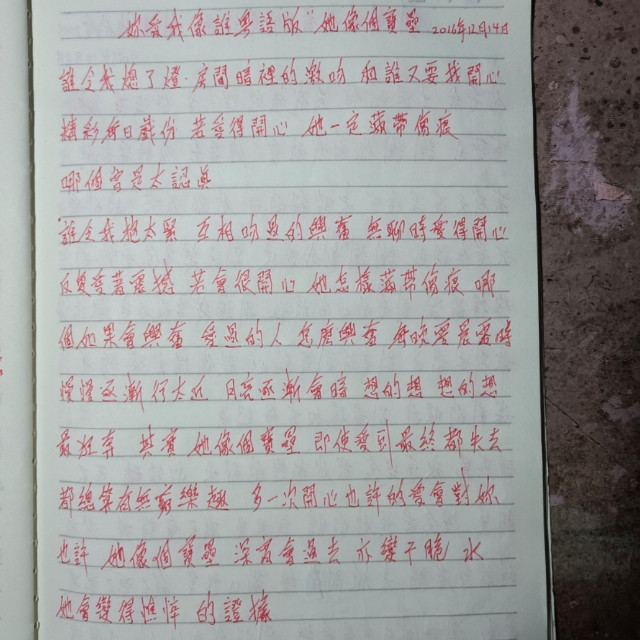 妳愛我像誰粵語版"她像個寶璺 2016年12月14日
誰令我熄了燈·房間暗裡的激吻 和誰又要我開心
精彩每日歲份 若愛得開心 她一定藏帶傷痕
哪個會是太認真
誰令我抱太緊 互相吻過的興奮 無聊時愛得開心
反覺受著震撼 若會很開心 她怎樣藏帶傷痕 哪
個如果會興奮 愛過的人 怎麼興奮 每晚
慢慢逐漸行太近 月亮逐漸會暗 想的想 想的想
最狂奔 其實 她像個寶璺 即使愛到最終都失去
都總算有無窮樂趣 多一次開心也許的 會對妳
也許 她像個寶璺 深 會過去 亦變干脆 水
她會變得憔悴 的證據